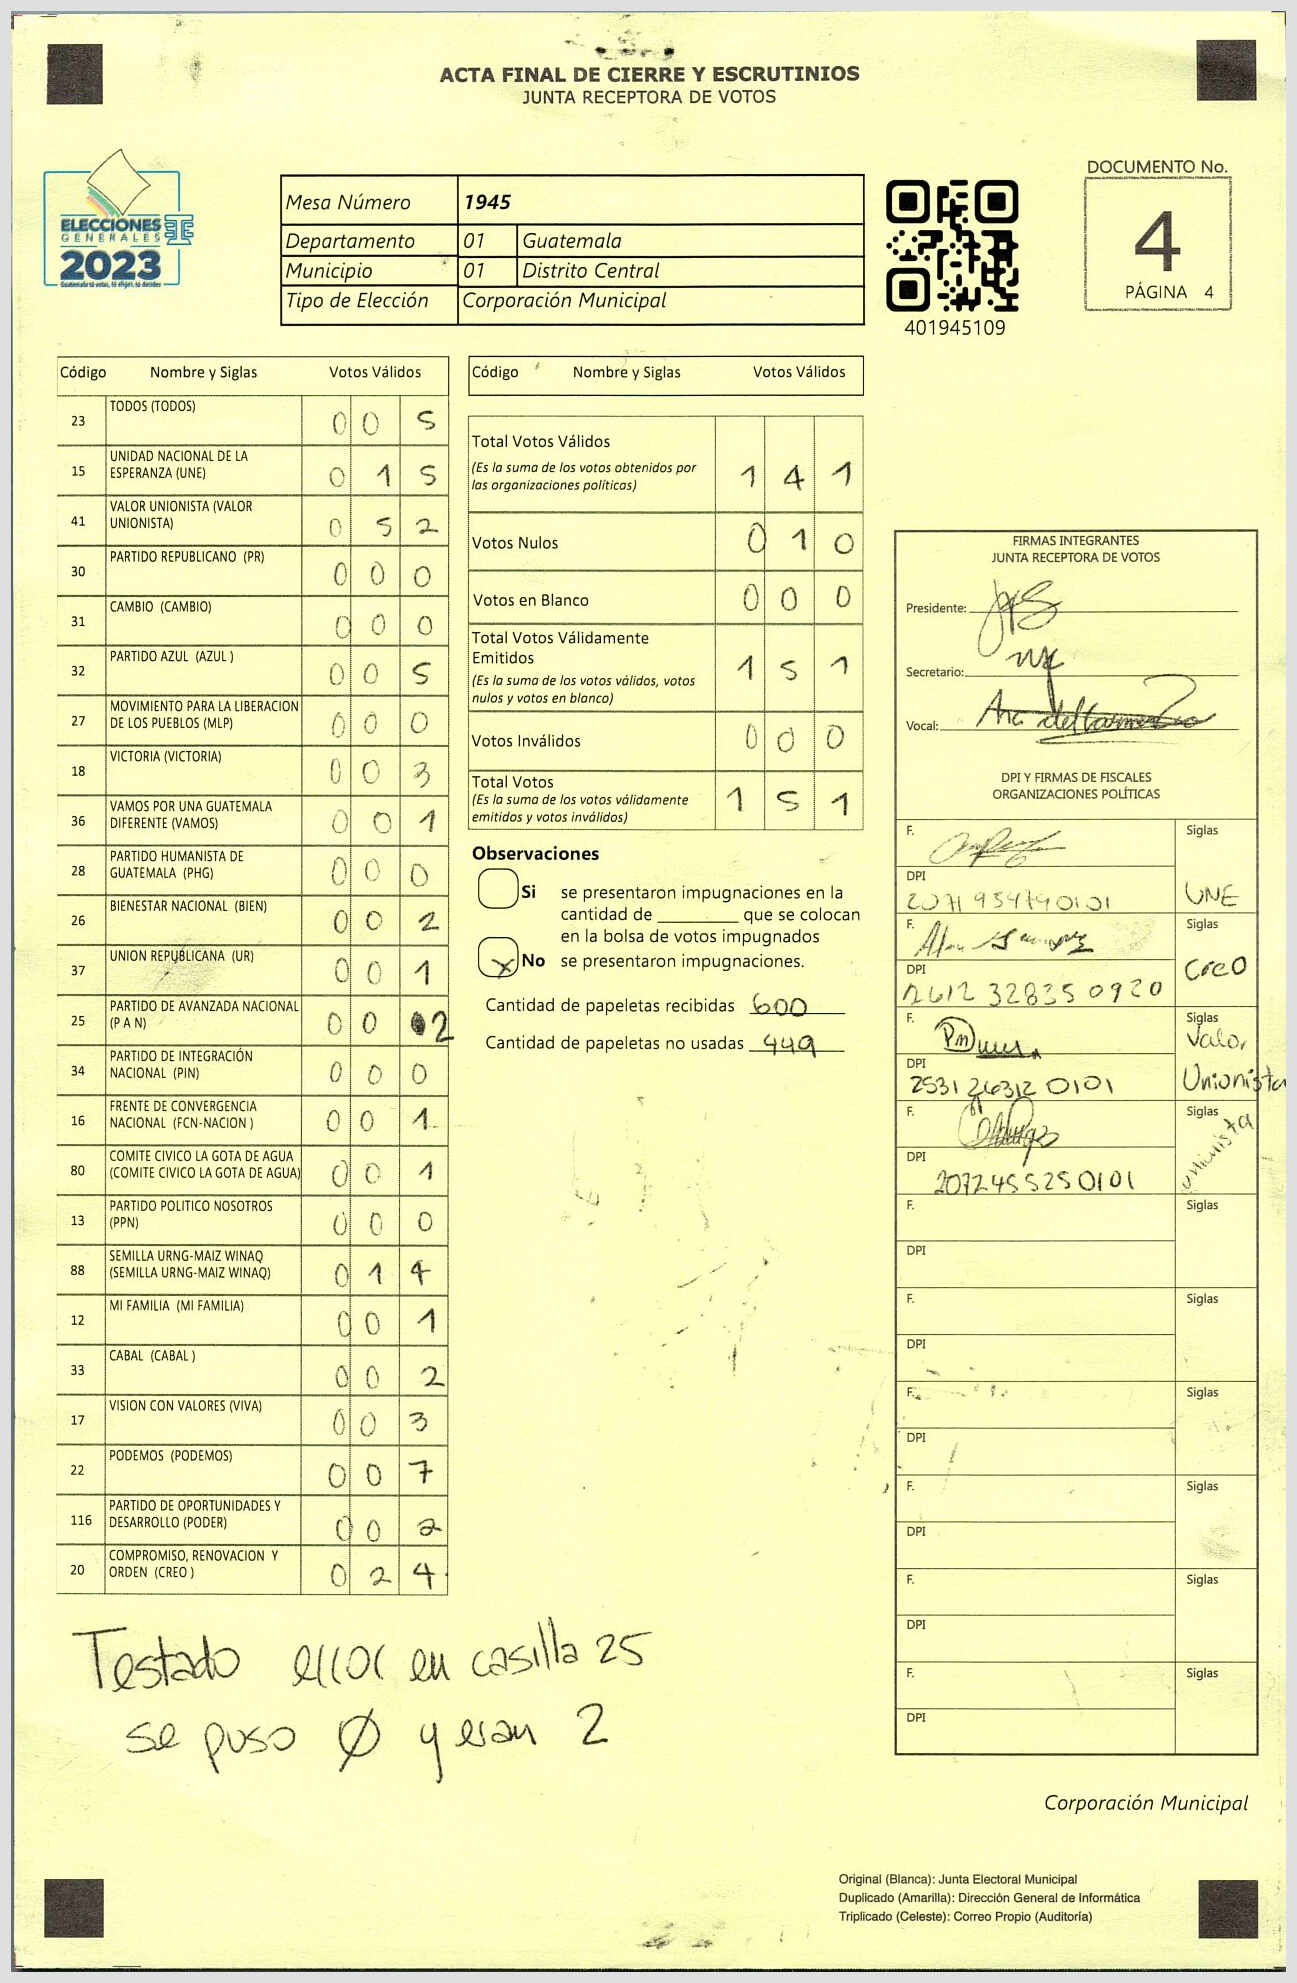 ACTA FINAL DE CIERRE Y ESCRUTINIOS
JUNTA RECEPTORA DE VOTOS
ELECCIONES
GENERALES
2023
Guatemala tú votas, tú eliges, tú decides
Mesa Número 1945
Departamento 01 Guatemala
Municipio 01 Distrito Central
Tipo de Elección Corporación Municipal
401945109
DOCUMENTO No.
4
PÁGINA 4
Código Nombre y Siglas Votos Válidos
23 TODOS (TODOS) 0 0 5
15 UNIDAD NACIONAL DE LA
ESPERANZA (UNE) 0 1 5
41 VALOR UNIONISTA (VALOR
UNIONISTA) 0 5 2
30 PARTIDO REPUBLICANO (PR) 0 0 0
31 CAMBIO (CAMBIO) 0 0 0
32 PARTIDO AZUL (AZUL ) 0 0 5
27 MOVIMIENTO PARA LA LIBERACION
DE LOS PUEBLOS (MLP) 0 0 0
18 VICTORIA (VICTORIA) 0 0 3
36 VAMOS POR UNA GUATEMALA
DIFERENTE (VAMOS) 0 0 1
28 PARTIDO HUMANISTA DE
GUATEMALA (PHG) 0 0 0
26 BIENESTAR NACIONAL (BIEN) 0 0 2
37 UNION REPUBLICANA (UR) 0 0 1
25 PARTIDO DE AVANZADA NACIONAL
(P A N) 0 0 2
34 PARTIDO DE INTEGRACIÓN
NACIONAL (PIN) 0 0 0
16 FRENTE DE CONVERGENCIA
NACIONAL (FCN-NACION ) 0 0 1
80 COMITE CIVICO LA GOTA DE AGUA
(COMITE CIVICO LA GOTA DE AGUA) 0 0 1
13 PARTIDO POLITICO NOSOTROS
(PPN) 0 0 0
88 SEMILLA URNG-MAIZ WINAQ
(SEMILLA URNG-MAIZ WINAQ) 0 1 4
12 MI FAMILIA (MI FAMILIA) 0 0 1
33 CABAL (CABAL ) 0 0 2
17 VISION CON VALORES (VIVA) 0 0 3
22 PODEMOS (PODEMOS) 0 0 7
116 PARTIDO DE OPORTUNIDADES Y
DESARROLLO (PODER) 0 0 2
20 COMPROMISO, RENOVACION Y
ORDEN (CREO ) 0 2 4
Testado error en casilla 25
se puso Ø y eran 2
Código Nombre y Siglas Votos Válidos
Total Votos Válidos
(Es la suma de los votos obtenidos por
las organizaciones políticas) 1 4 1
Votos Nulos 0 1 0
Votos en Blanco 0 0 0
Total Votos Válidamente
Emitidos
(Es la suma de los votos válidos, votos
nulos y votos en blanco) 1 5 1
Votos Inválidos 0 0 0
Total Votos
(Es la suma de los votos válidamente
emitidos y votos inválidos) 1 5 1
Observaciones
Si se presentaron impugnaciones en la
cantidad de ________ que se colocan
en la bolsa de votos impugnados
X No se presentaron impugnaciones.
Cantidad de papeletas recibidas 600
Cantidad de papeletas no usadas 449
FIRMAS INTEGRANTES
JUNTA RECEPTORA DE VOTOS
Presidente:
Secretario:
Vocal: Ana del Carmen
DPI Y FIRMAS DE FISCALES
ORGANIZACIONES POLÍTICAS
F. Siglas
DPI UNE
2071 95479 0101
F. Siglas
DPI CREO
2612 32835 0920
F. Siglas
DPI Valor Unionista
2531 26312 0101
F. Siglas
DPI unionista
2072 45525 0101
F. Siglas
DPI
F. Siglas
DPI
F. Siglas
DPI
F. Siglas
DPI
F. Siglas
DPI
F. Siglas
DPI
Corporación Municipal
Original (Blanca): Junta Electoral Municipal
Duplicado (Amarilla): Dirección General de Informática
Triplicado (Celeste): Correo Propio (Auditoría)